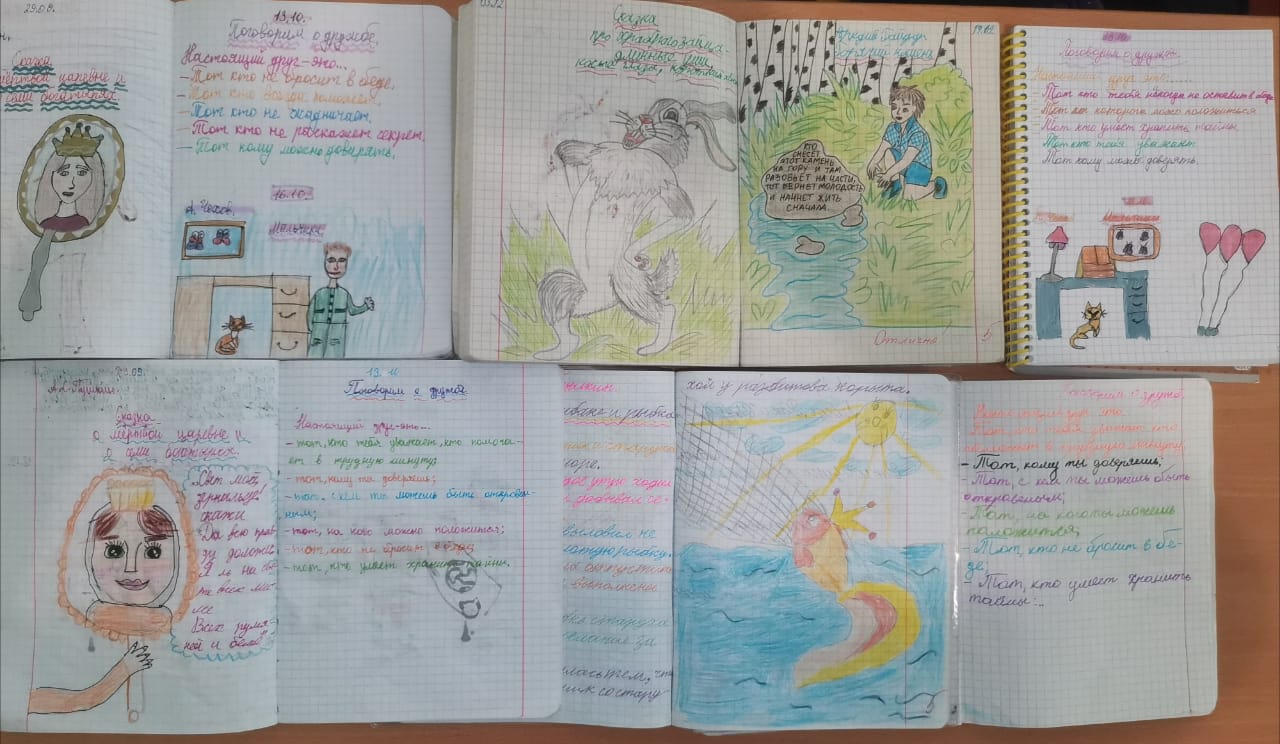 29.09.
Сказка
мёртвой царевне и
семи богатырях
13.10.
Поговорим о дружбе.
Настоящий друг-это...
- Тот кто не бросит в беде,
- Тот кто всегда поможет,
- Тот кто не жадничает,
- Тот кто не расскажет секрет,
- Тот кому можно доверять.
16.10.
А. Чехов.
Мальчики
03.12
Сказка
про храброго зайца-
длинные уши,
косые глаза, короткий хвост
Аркадий Гайдар
Горячий камень
19.02.
КТО
СНЕСЁТ
ЭТОТ КАМЕНЬ
НА ГОРУ И ТАМ
РАЗОБЬЁТ НА ЧАСТИ,
ТОТ ВЕРНЁТ МОЛОДОСТЬ
И НАЧНЁТ ЖИТЬ
СНАЧАЛА.
Отлично 5
Поговорим о дружбе.
Настоящий друг это....
- Тот кто тебя никогда не оставит в беде
- Тот на которого можно положиться
- Тот кто умеет хранить тайны
- Тот кто тебя уважает
- Тот кому можно доверять.
А. Чехов
Мальчики
.09.
А.С. Пушкин.
Сказка
о мёртвой царевне и
о семи богатырях.
"Свет мой,
зеркальце!
скажи
Да всю прав-
ду доложи:
Я ль на све-
те всех ми-
лее
Всех румя-
ней и белее"
13.10
Поговорим о дружбе.
Настоящий друг-это...
- тот, кто тебя уважает, кто помога-
ет в трудную минуту;
- тот, кому ты доверяешь;
- тот, с кем ты можешь быть откровен-
ным;
- тот, на ково можно положиться;
- тот, кто не бросит в беде
- тот, кто умеет хранить тайны.
рыбаке и рыбке
море.
выловил не
отпустил
старуха
желание за
лась тем, что
ик со стару
хой у разбитова корыта.
Поговорим о дружбе.
Настоящий друг это
- Тот, кто тебя уважает кто
помогает в трудную минуту;
- Тот, кому ты доверяешь;
- Тот, с кем ты можешь быть
откровеным;
- Тот, на кого ты можешь
положится;
- Тот, кто не бросит в бе-
де;
- Тот, кто умеет хранить
тайны...